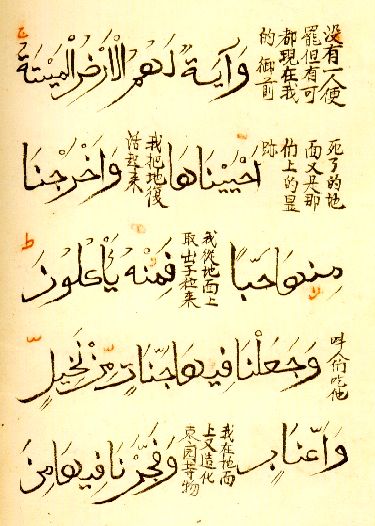 没有一人便
罷但有可
都現在我
的御前
وَآيَةٌ لَهُمُ الْأَرْضُ الْمَيْتَةُ
死了的地
面又是那
上的显
跡
أَحْيَيْنَاهَا
我把地復
活起来
وَأَخْرَجْنَا
مِنْهَا حَبًّا
我從地面上
取出子粒来
فَمِنْهُ يَأْكُلُونَ
吃他
وَجَعَلْنَا فِيهَا جَنَّاتٍ مِّنْ نَخِيلٍ
وَأَعْنَابٍ
我在地面
上又造化
园等物
وَفَجَّرْنَا فِيهَا مِنَ